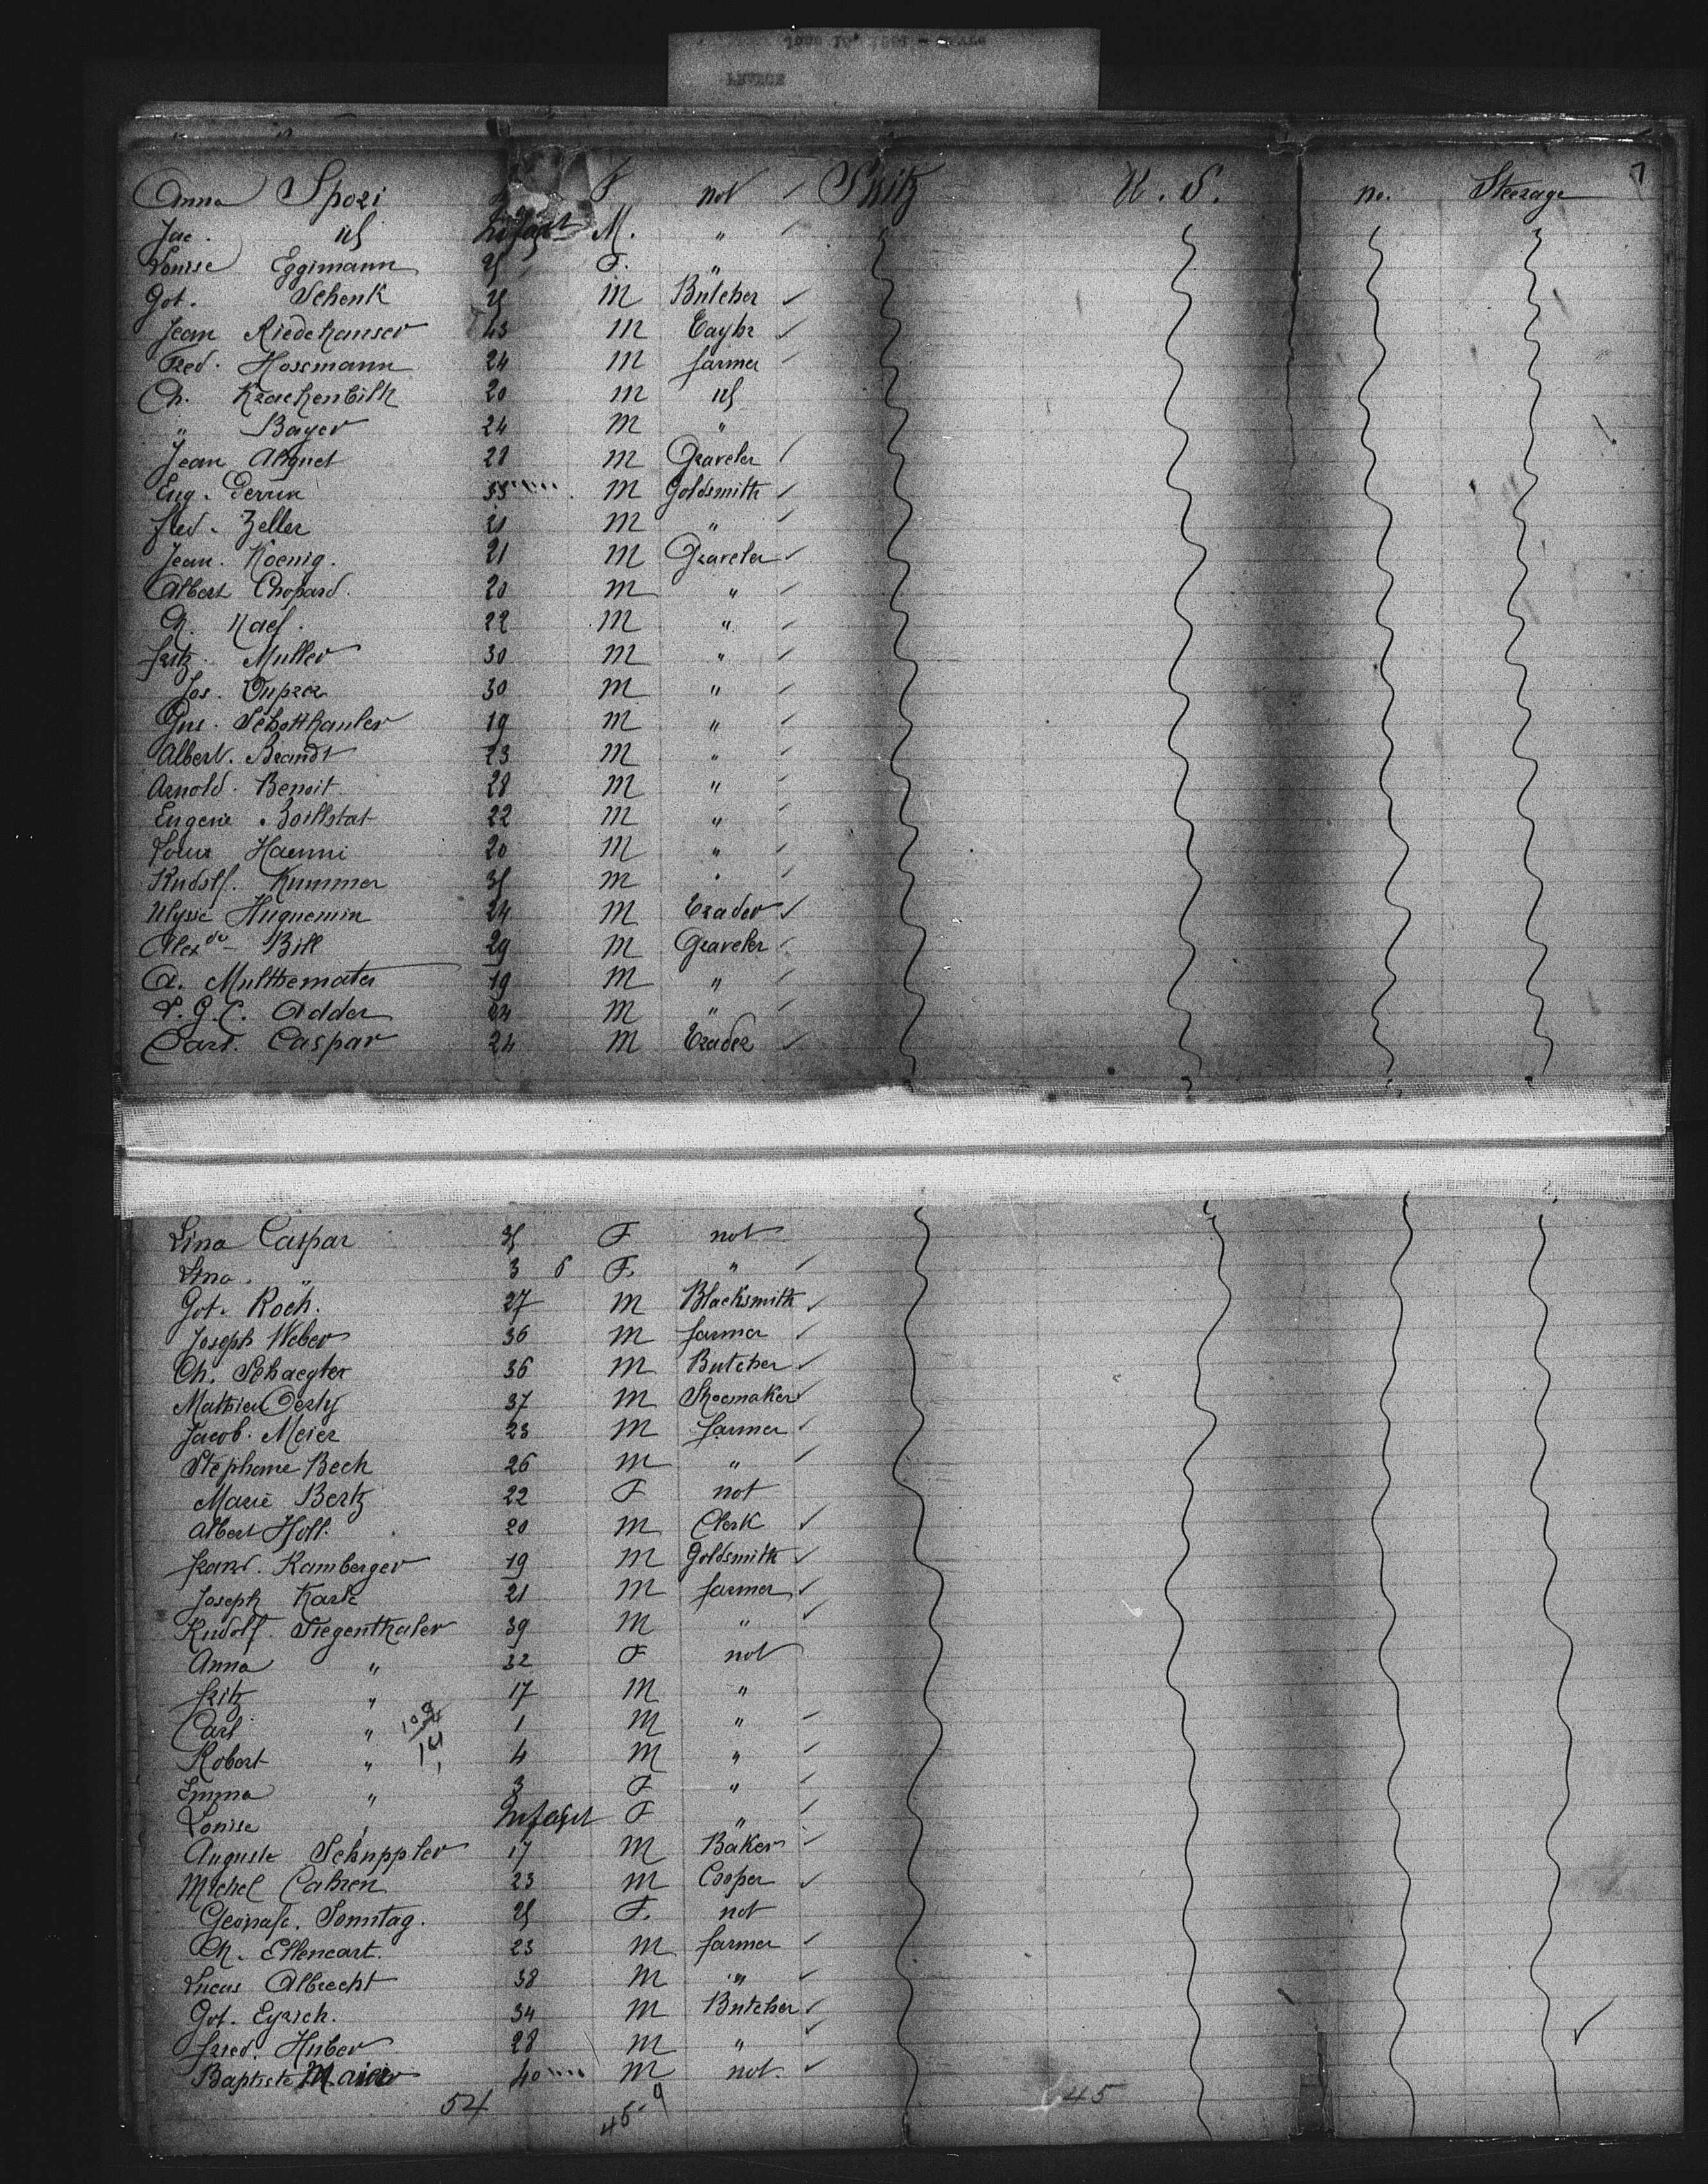 7
Anna Spori F not Switz U. S. no. Steerage
Jac. id Infant M. "
Louise Eggimann 25 F. "
Got. Schenk 25 M Butcher
Jean Riedehauser 43 M Taylor
Fred. Hossmann 24 M farmer
Ch. Krachenbith 20 M id
" Bayer 24 M "
Jean Aliguet 28 M Graveler
Eug. Perrin 33 M Goldsmith
fred. Zeller 21 M "
Jean. Koenig. 21 M Graveler
Albert Chopard. 20 M "
Ch. Naef. 22 M "
fritz. Muller 30 M "
Jos. Duprez 30 M "
Gus. Schotthauler 19 M "
Albert. Brandt 23 M "
Arnold. Benoit. 28 M "
Eugene Boillstat 22 M "
Louis Haenni 20 M "
Rudolf. Kummer 35 M "
Ulysse Huguemin 24 M Trader
Alexdre Bill 29 M Graveler
A. Multhemater 19 M "
L. G. C. Adder 24 M "
Carl. Caspar 24 M Trader
Lina Caspar 35 F not
Lina. " 3 6 F. "
Got. Roch. 27 M Blacksmith
Joseph Weber 36 M farmer
Ch. Schaegter 36 M Butcher
Mathieu Oerly 37 M Shoemaker
Jacob. Meier 23 M farmer
Stephane Bech 26 M "
Marie Bertz 22 F not
Albert Holl. 20 M Clerk
franz. Ramberger 19 M Goldsmith
Joseph Karle 21 M farmer
Rudolf. Siegenthaler 39 M "
Anna " 32 F not
fritz " 17 M "
Carl " 1 M "
Robert " 4 M "
Emma " 3 F "
Louise " Infant F "
Auguste Schuppler 17 M Baker
Michel Cahzen 23 M Cooper
Sonntag. 25 F. not
Ch. Ellencart. 23 M farmer
Lucas Albrecht 38 M "
Got. Eyrich. 34 M Butcher
fried. Huber 28 M "
Baptiste Maier 40 M not.
54 45 9 45